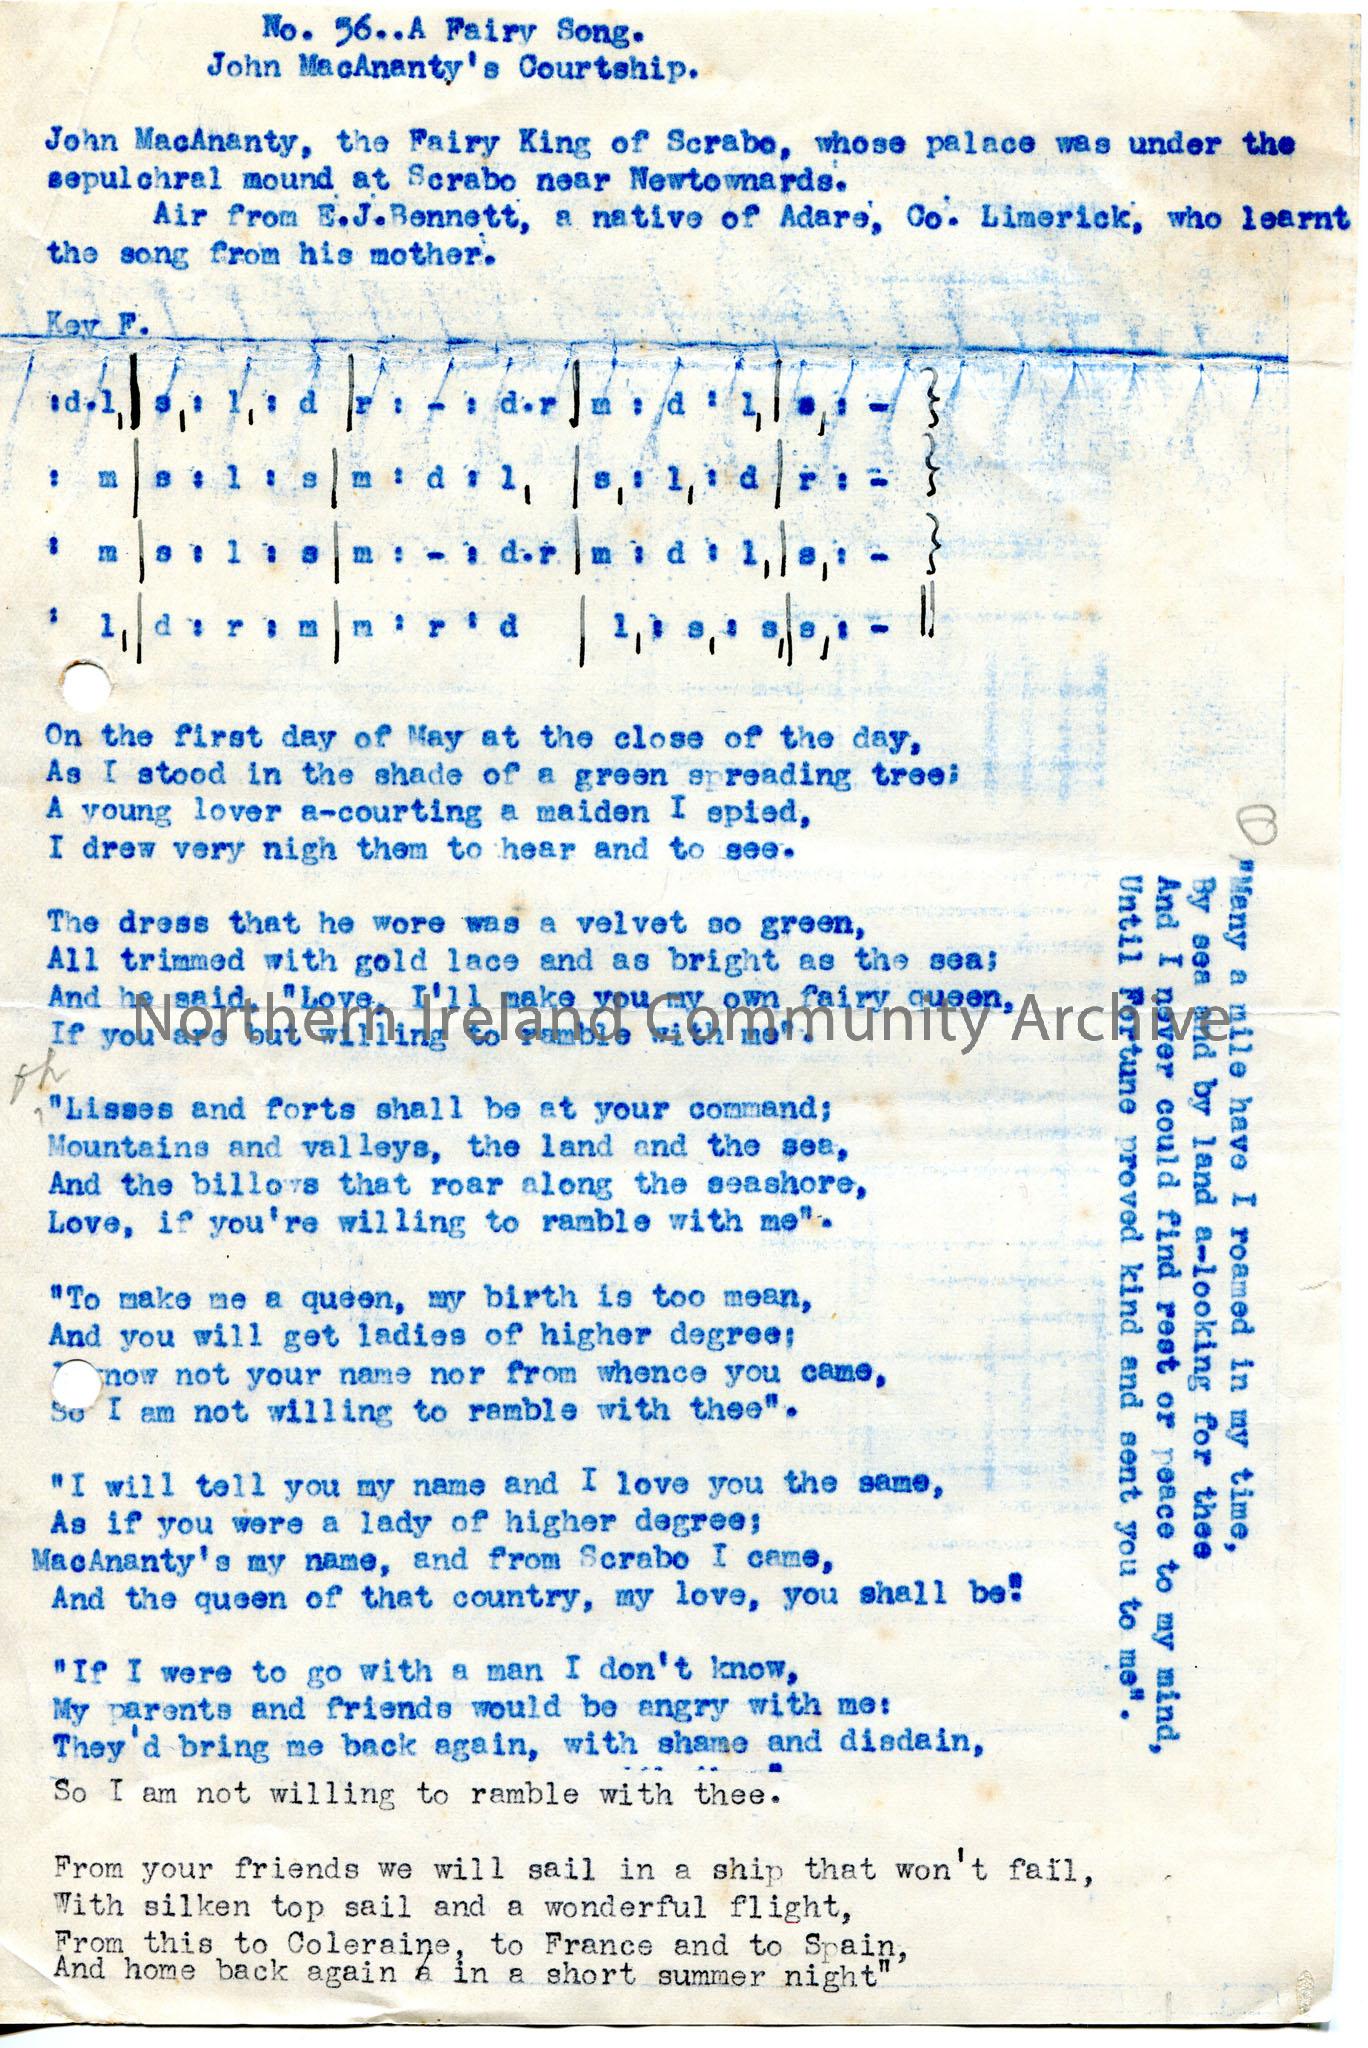 No. 56..A Fairy Song.
John MacAnanty's Courtship.
John MacAnanty, the Fairy King of Scrabo, whose palace was under the
sepulchral mound at Scrabo near Newtownards.
Air from E.J.Bennett, a native of Adare, Co. Limerick, who learnt
the song from his mother.
Key F.
:d.l,| s,: l,: d |r : - : d.r | m : d : l,| s,: -
: m | s : l : s | m : d : l, | s,: l,: d | r : -
: m | s : l : s | m : - : d.r | m : d : l,| s,: -
: l,| d : r : m | m : r : d | l,: s,: s,| s,: - ||
On the first day of May at the close of the day,
As I stood in the shade of a green spreading tree;
A young lover a-courting a maiden I spied,
I drew very nigh them to hear and to see.
The dress that he wore was a velvet so green,
All trimmed with gold lace and as bright as the sea;
And he said, "Love, I'll make you my own fairy queen,
If you are but willing to ramble with me".
Northern Ireland Community Archive
"Lisses and forts shall be at your command;
Mountains and valleys, the land and the sea,
And the billows that roar along the seashore,
Love, if you're willing to ramble with me".
"To make me a queen, my birth is too mean,
And you will get ladies of higher degree;
I know not your name nor from whence you came,
So I am not willing to ramble with thee".
"I will tell you my name and I love you the same,
As if you were a lady of higher degree;
MacAnanty's my name, and from Scrabo I came,
And the queen of that country, my love, you shall be."
"If I were to go with a man I don't know,
My parents and friends would be angry with me:
They'd bring me back again, with shame and disdain,
So I am not willing to ramble with thee.
From your friends we will sail in a ship that won't fail,
With silken top sail and a wonderful flight,
From this to Coleraine, to France and to Spain,
And home back again a in a short summer night"
"Many a mile have I roamed in my time,
By sea and by land a-looking for thee
And I never could find rest or peace to my mind,
Until Fortune proved kind and sent you to me".